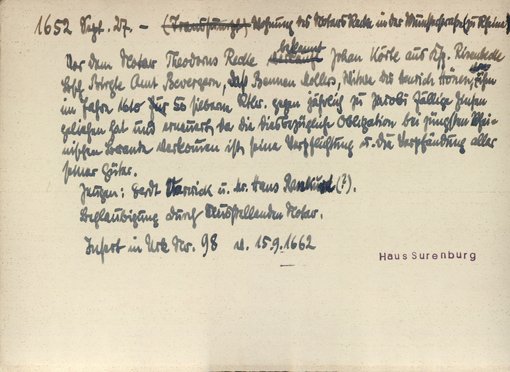 1652 Sept. 27. – (Transsumpt) Wohnung des Notars Recke in der Münsterstraße (zu Rheine)
Vor dem Notar Theodorus Recke bekennt Johan Körle aus Ksp. Riesenbeck
Bschft. Birgte Amt Bevergern, daß Bennen Molles, Witwe des Henrich Hönen, ihm
im Jahre 1610 für 50 silberne Rtlr. gegen jährlich zu Jacobi fällige Zinsen
geliehen hat und erneuert, da die diesbezügliche Obligation bei jüngsten Rhei-
nischen Brande verkomen ist, seine Verpflichtung u. die Verpfändung aller
seiner Güter.
Zeugen: Gerdt Varwick u. Hans (?).
Beglaubigung durch ausstellenden Notar.
Insert in Urk Nr. 98 v. 15.9.1662
Haus Surenburg